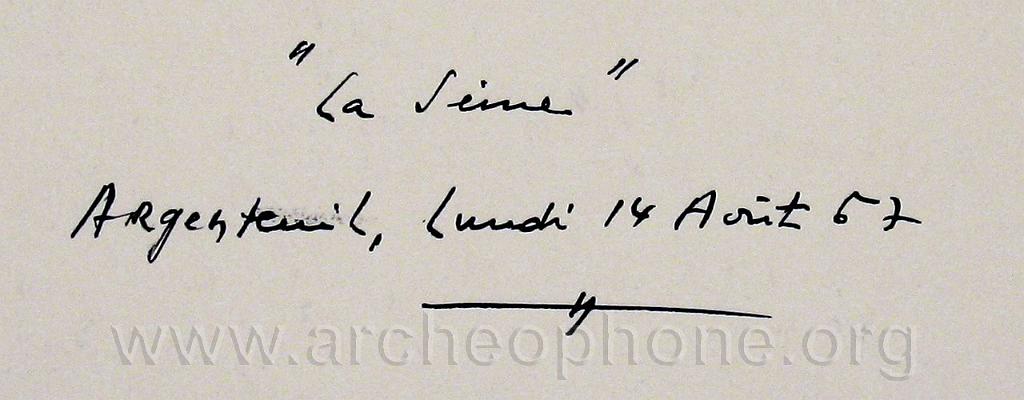 "La Seine"
Argenteuil, Lundi 14 Août 67
www.archeophone.org